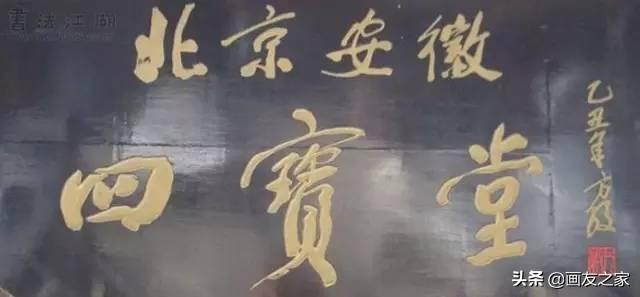 書法江湖
北京安徽
四寶堂
乙丑年方毅
头条@画友之家